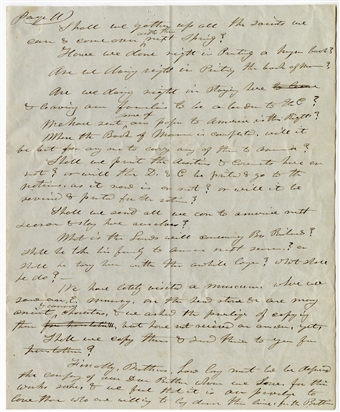 (Page 11)
Shall we gather up all the saints we
can & come over with them next Spring?
Have we done right in Printing a hymn book?
Are we doing right in Printing the book of Mormon?
Are we doing right in staying here
& leaving our families to be a burden to the C?
We have sent some poor to America is this Right?
When the Book of Mormon is completed, will it
be best for any one to carry any of them to America?
Shall we print the doctrine & Covenants here or
not? or will the D. & C be printed & go to the
nations, as it now is or not? or will it be
revised & printed for the nations?
Shall we send all we can to america next
season & stay here ourselves?
What is the Lords will concerning Bro
Shall he take his family to america next season? or
Shall he tarry here with them awhile longer? What shall
he do?
We have lately visited a museum, where we
saw an E. mummy, on the head stone &c are many
ancient & curious characters, & we asked the privilege of copying
them but have not received an answer, yet,
Shall we copy them & send them to you for
translation?
Finally, Brethren, how long must we be deprived
the company of our Dear Brethren whom we Love, for their
works sake, & we feel that it is our privilege to
Love those who are willing to lay down their lives, for the Brethren